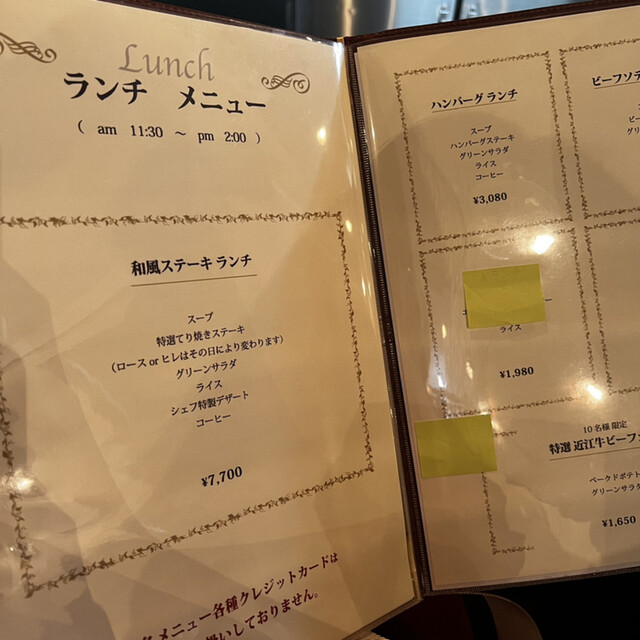 Lunch
ランチ メニュー
( am 11:30 ～ pm 2:00 )
和風ステーキ ランチ
スープ
特選てり焼きステーキ
(ロース or ヒレはその日により変わります)
グリーンサラダ
ライス
シェフ特製デザート
コーヒー
¥7,700
メニュー各種クレジットカードは
しておりません。
ハンバーグ ランチ
スープ
ハンバーグステーキ
グリーンサラダ
ライス
コーヒー
¥3,080
ビーフソテ
ライス
¥1,980
10名様 限定
特選 近江牛ビーフ
ベークドポテト
グリーンサラダ
¥1,650